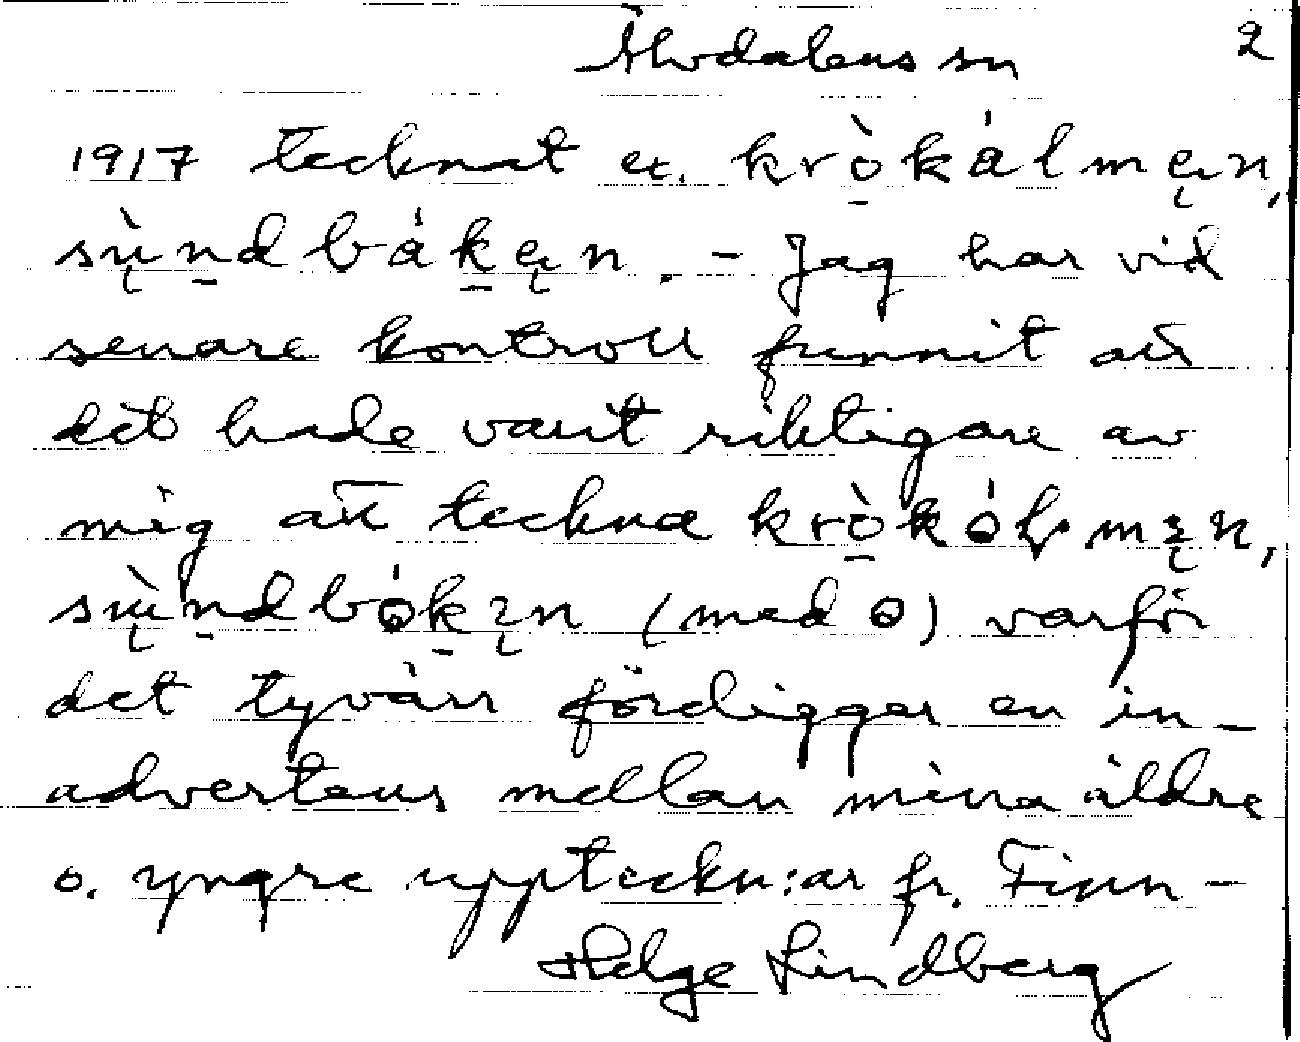 Älvdalens sn 2
1917 tecknat ex. kròkálmen,
sùndbáken. - Jag har vid
senare kontroll funnit att
det hade varit riktigare av
mig att teckna
(med o) varför
det tyvärr föreligger en in-
advertens mellan mina äldre
o. yngre uppteckn:ar fr. Finn-
Helge Lindberg